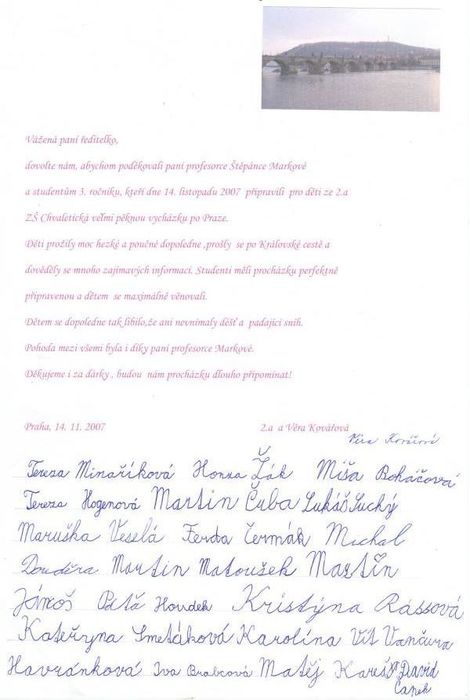 Vážená paní ředitelko,
dovolte nám, abychom poděkovali paní profesorce Štěpánce Markové
a studentům 3. ročníku, kteří dne 14. listopadu 2007 připravili pro děti ze 2.a
ZŠ Chvaletická veľmi pěknou vycházku po Praze.
Děti prožily moc hezké a poučné dopoledne ,prošly se po Královské cestě a
dověděly se mnoho zajímavých informací. Studenti měli procházku perfektně
připravenou a dětem se maximálně věnovali.
Dětem se dopoledne tak líbilo,že ani nevnímaly déšť a padající sníh.
Pohoda mezi všemi byla i díky paní profesorce Markové.
Děkujeme i za dárky , budou nám procházku dlouho připomínat!
Praha, 14. 11. 2007 2.a a Věra Kovářová
Věra Kovářová
Tereza Minaříková Honza Žák Míša Boháčová
Tereza Hogenová Martin Čuba Lukáš Suchý
Maruška Veselá Ferda Čermák Michal
Doudēra Martin Matoušek Martin
Jánoš Péťa Houdek Kristýna Rássová
Kateřyna Smetáková Karolína Vít Vančura
Havránková Iva Brabcová Matěj Kareš David
Čapek